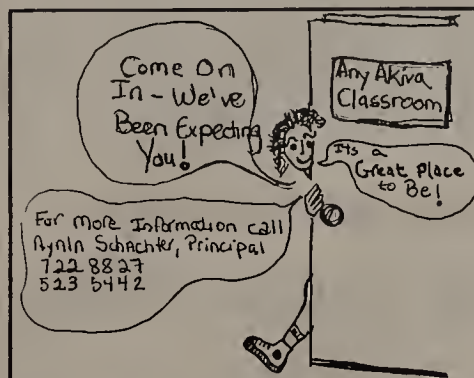 Come On
In - We've
Been Expecting
You!
Any Akiva
Classroom
Its a
Great Place
to Be!
For More Information call
Schachter, Principal
722 8827
523 5442